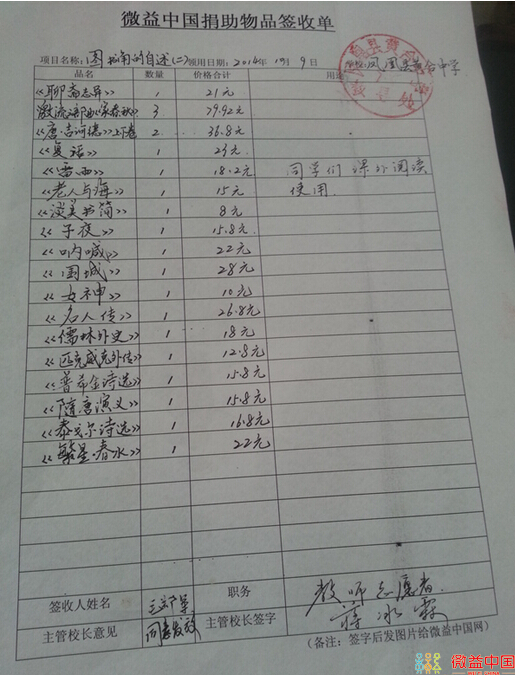 微益中国捐助物品签收单
项目名称：图书角的自述(二) 领用日期：2014年 月9日 学校：凤凰县黄合中学
品名 数量 价格合计 用途
《聊斋志异》 1 21元
激流三部曲《家春秋》 3 79.92元
《唐·吉诃德》上下卷 2 36.8元
《复活》 1 23元
《雷雨》 1 18.2元 同学们课外阅读
《老人与海》 1 15元 使用.
《谈美书简》 1 8元
《子夜》 1 15.8元
《呐喊》 1 22元
《围城》 1 28元
《女神》 1 10元
《名人传》 1 26.8元
《儒林外史》 1 18元
《匹克威克外传》 1 12.8元
《普希金诗选》 1 15.8元
《隋唐演义》 1 15.8元
《泰戈尔诗选》 1 16.8元
《繁星·春水》 1 22元
签收人姓名 职务 教师志愿者
主管校长意见 同意发放 主管校长签字
(备注：签字后发图片给微益中国网)
微益中国